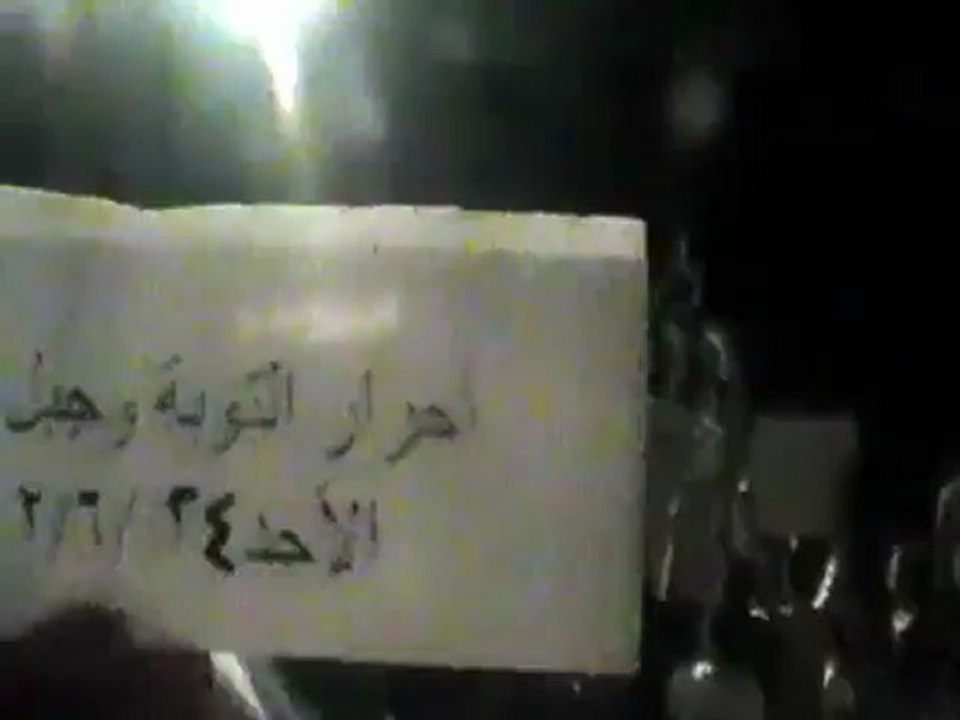 أحرار التوبة وجبل
الأحد ٢٤/٦/٢